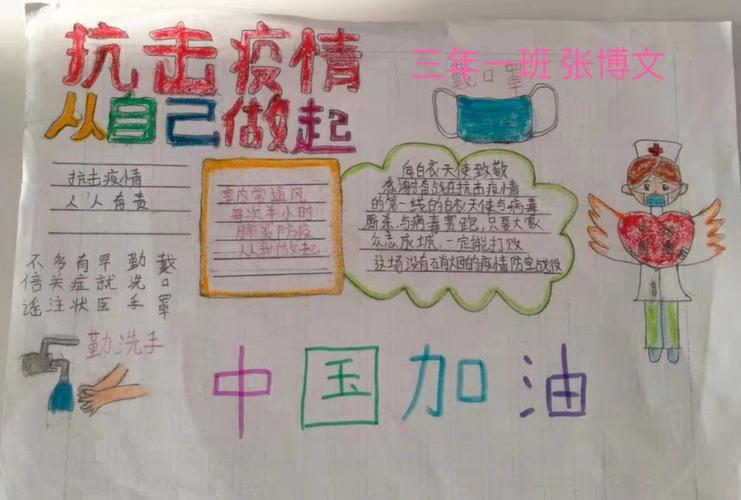 抗击疫情
三年一班 张博文
从自己做起
戴口罩
抗击疫情
人人有责
室内常通风
每次半小时
肺炎防疫
我做起
向白衣天使致敬
感谢奋战在抗击疫情
的第一线的白衣天使与病毒
厮杀.与病毒赛跑,只要大家
众志成城.一定能打败
这场没有硝烟的疫情防空战役
不信谣
多关注
有症状
早就医
勤洗手
戴口罩
勤洗手
中国加油